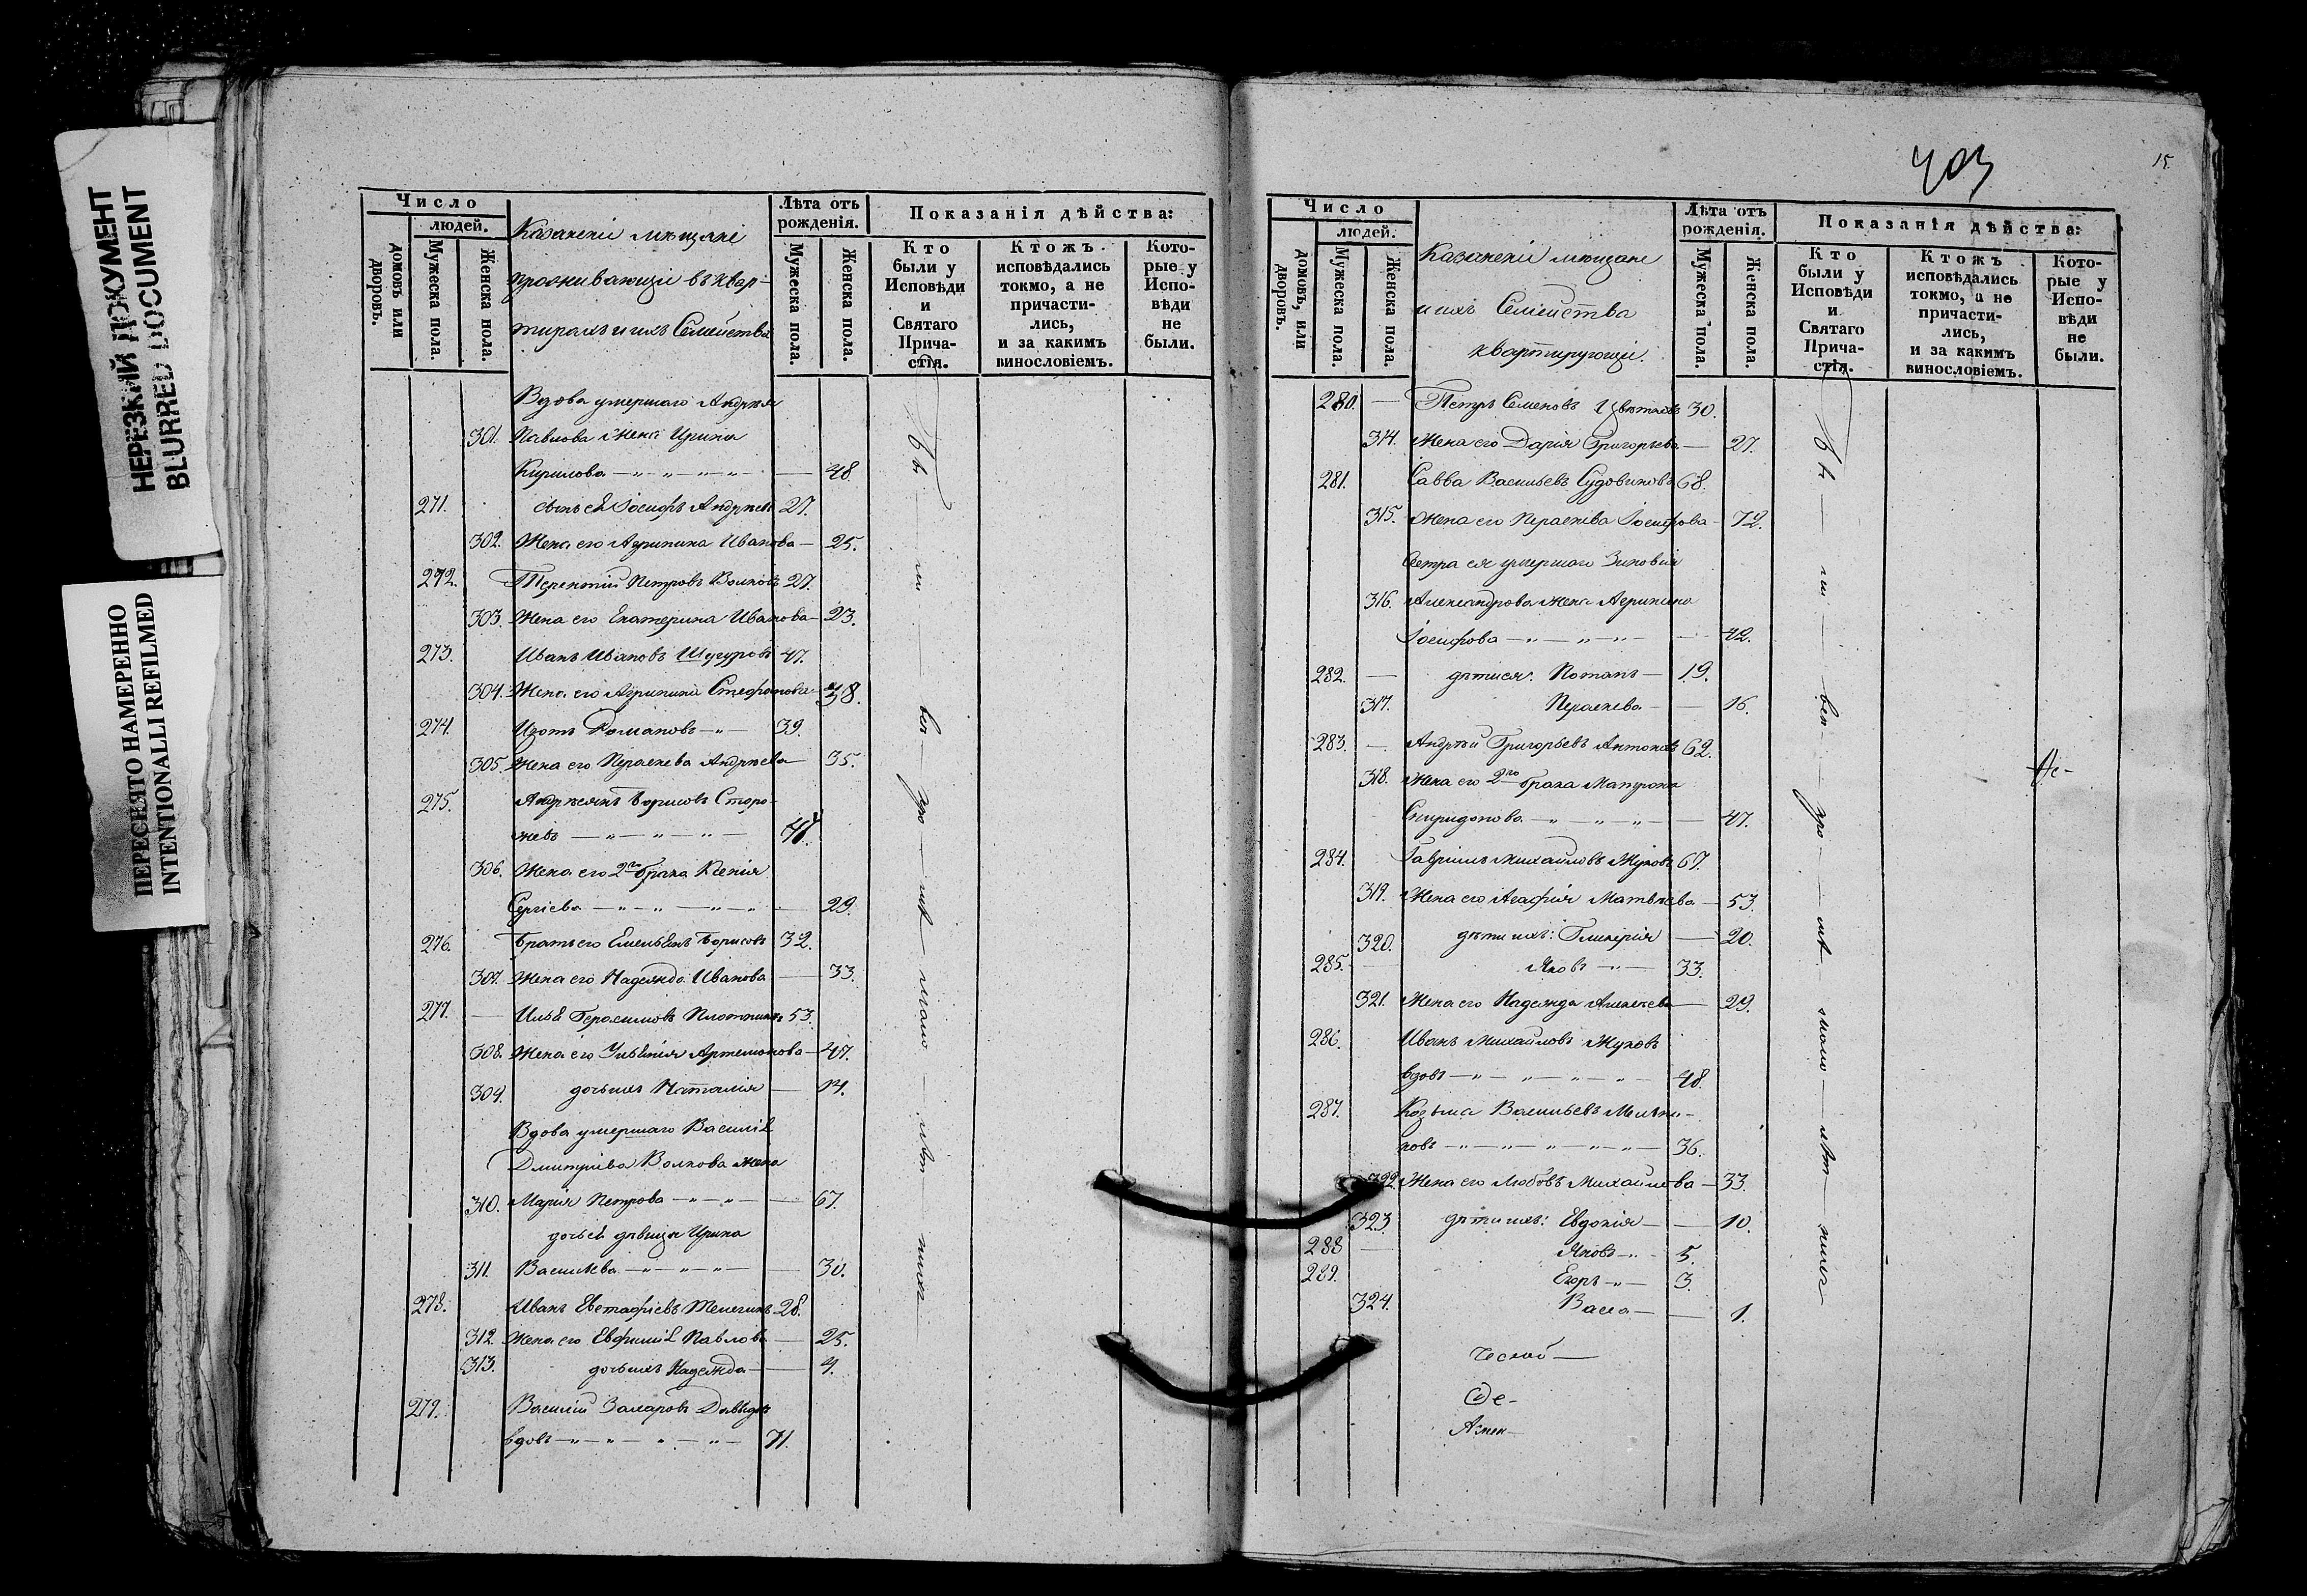 НЕРЕЗКИЙ ДОКУМЕНТ
BLURRED DOCUMENT
ПЕРЕСНЯТО НАМЕРЕННО
INTENTIONALLI REFILMED
Число
людей.
домовъ или дворовъ.
Мужеска пола.
Женска пола.
Казанскіе мещане
проживающіе въ квар-
тирахъ и ихъ Семейства
Лѣта отъ рожденія.
Мужеска пола.
Женска пола.
Показанія дѣйства:
Кто были у Исповѣди и Святаго Прича-стія.
Ктожъ исповѣдались токмо, а не причасти-лись, и за какимъ винословіемъ.
Кото-рые у Испо-вѣди не были.
Вдова умершаго Андрея
301. Павлова жена Ирина
Кирилова — „ — „ — „ — „ — 48.
271. сынъ ея Іосифъ Андреевъ 27.
302. Жена его Агрипина Иванова — 25.
272. Терентій Петровъ Волковъ 27.
303. Жена его Екатерина Иванова — 23.
273. Иванъ Ивановъ 47.
304. Жена его Агрипина Стефанова — 38.
274. Изотъ Романовъ — „ — 39.
305. Жена его Параскева Андреева 35.
275. Андреянъ Борисовъ Сторо-
жевъ — „ — „ — „ — 41.
306. Жена его 2го брака Ксенія
Сергіева — „ — „ — „ — „ — 29.
276. Братъ его Емельянъ Борисовъ 32.
307. Жена его Надежда Иванова — 33.
277. — Илья Герасимовъ Плотниковъ 53.
308. Жена его Ульянія Артемонова — 47.
309. дочь ихъ Наталія — 14.
Вдова умершаго Василія
Дмитріева Волкова жена
310. Марія Петрова — „ — „ — 67.
дочь ея дѣвица Ирина
311. Васильева — „ — „ — „ — 30.
278. Иванъ Евстафіевъ Телегинъ 28.
312. Жена его Евфимія Павлова — 25.
313. дочь ихъ Надежда — 4.
279. Василій Захаровъ Давыдовъ
вдовъ — „ — „ — „ — „ — 71.
403
15.
Число
людей.
домовъ, или дворовъ.
Мужеска пола.
Женска пола.
Казанскіе мещане
и ихъ Семейства
квартирующіе.
Лѣта отъ рожденія.
Мужеска пола.
Женска пола.
Показанія дѣйства:
Кто были у Исповѣди и Святаго Прича-стія.
Ктожъ исповѣдались токмо, а не причасти-лись, и за какимъ винословіемъ.
Кото-рые у Испо-вѣди не были.
280. — Петръ Семеновъ Цвѣтковъ 30.
314. Жена его Дарія Григорьева — 27.
281. Савва Васильевъ Судовиковъ 68.
315. Жена его Параскева Іосифова — 72.
Сестра ея умершаго Зиновія
316. Александрова жена Агрипина
Іосифова — „ — „ — „ — 42.
282. — дѣти ея: Романъ — 19.
317. Параскева — 16.
283. — Андрей Григорьевъ Антоновъ 62.
318. Жена его 2го брака Матрона
Спиридонова — „ — „ — „ — 47.
284. Гавріилъ Михайловъ Жуковъ 67.
319. Жена его Агафія Матвѣева — 53.
320. дѣти ихъ: Гликерія — 20.
285. — Яковъ — „ — 33.
321. Жена его Надежда Алексеева — 29.
286. Иванъ Михайловъ Жуковъ
вдовъ — „ — „ — „ — „ — 48.
287. Козьма Васильевъ Мельни-
ковъ — „ — „ — „ — „ — 36.
322. Жена его Любовь Михайлова — 33.
323. дѣти ихъ: Евдокія — 10.
288 — Яковъ — „ 5.
289. Егоръ — „ — 3.
324. Васса — 1.